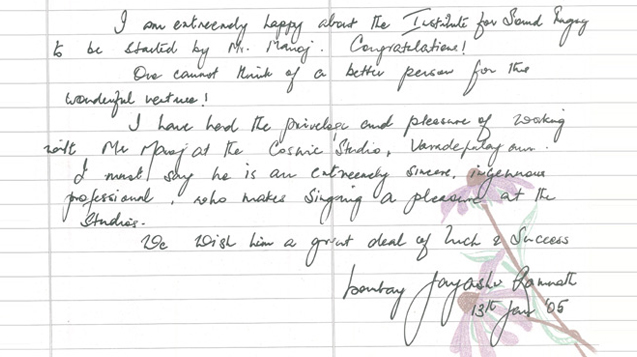 I am extreemly happy about the Institute for Sound Engrg
to be started by Mr. Manoj. Congratulations!
One cannot think of a better person for this
wonderful venture!
I have had the privelege and pleasure of working
with Mr Manoj at the Cosmic Studio,
I must say he is an extreemly sincere, ingenuous
professional, who makes singing a pleasure at the
Studios.
We wish him a great deal of luck & Success
bombay Jayashri Ramnath
13th Jan '05